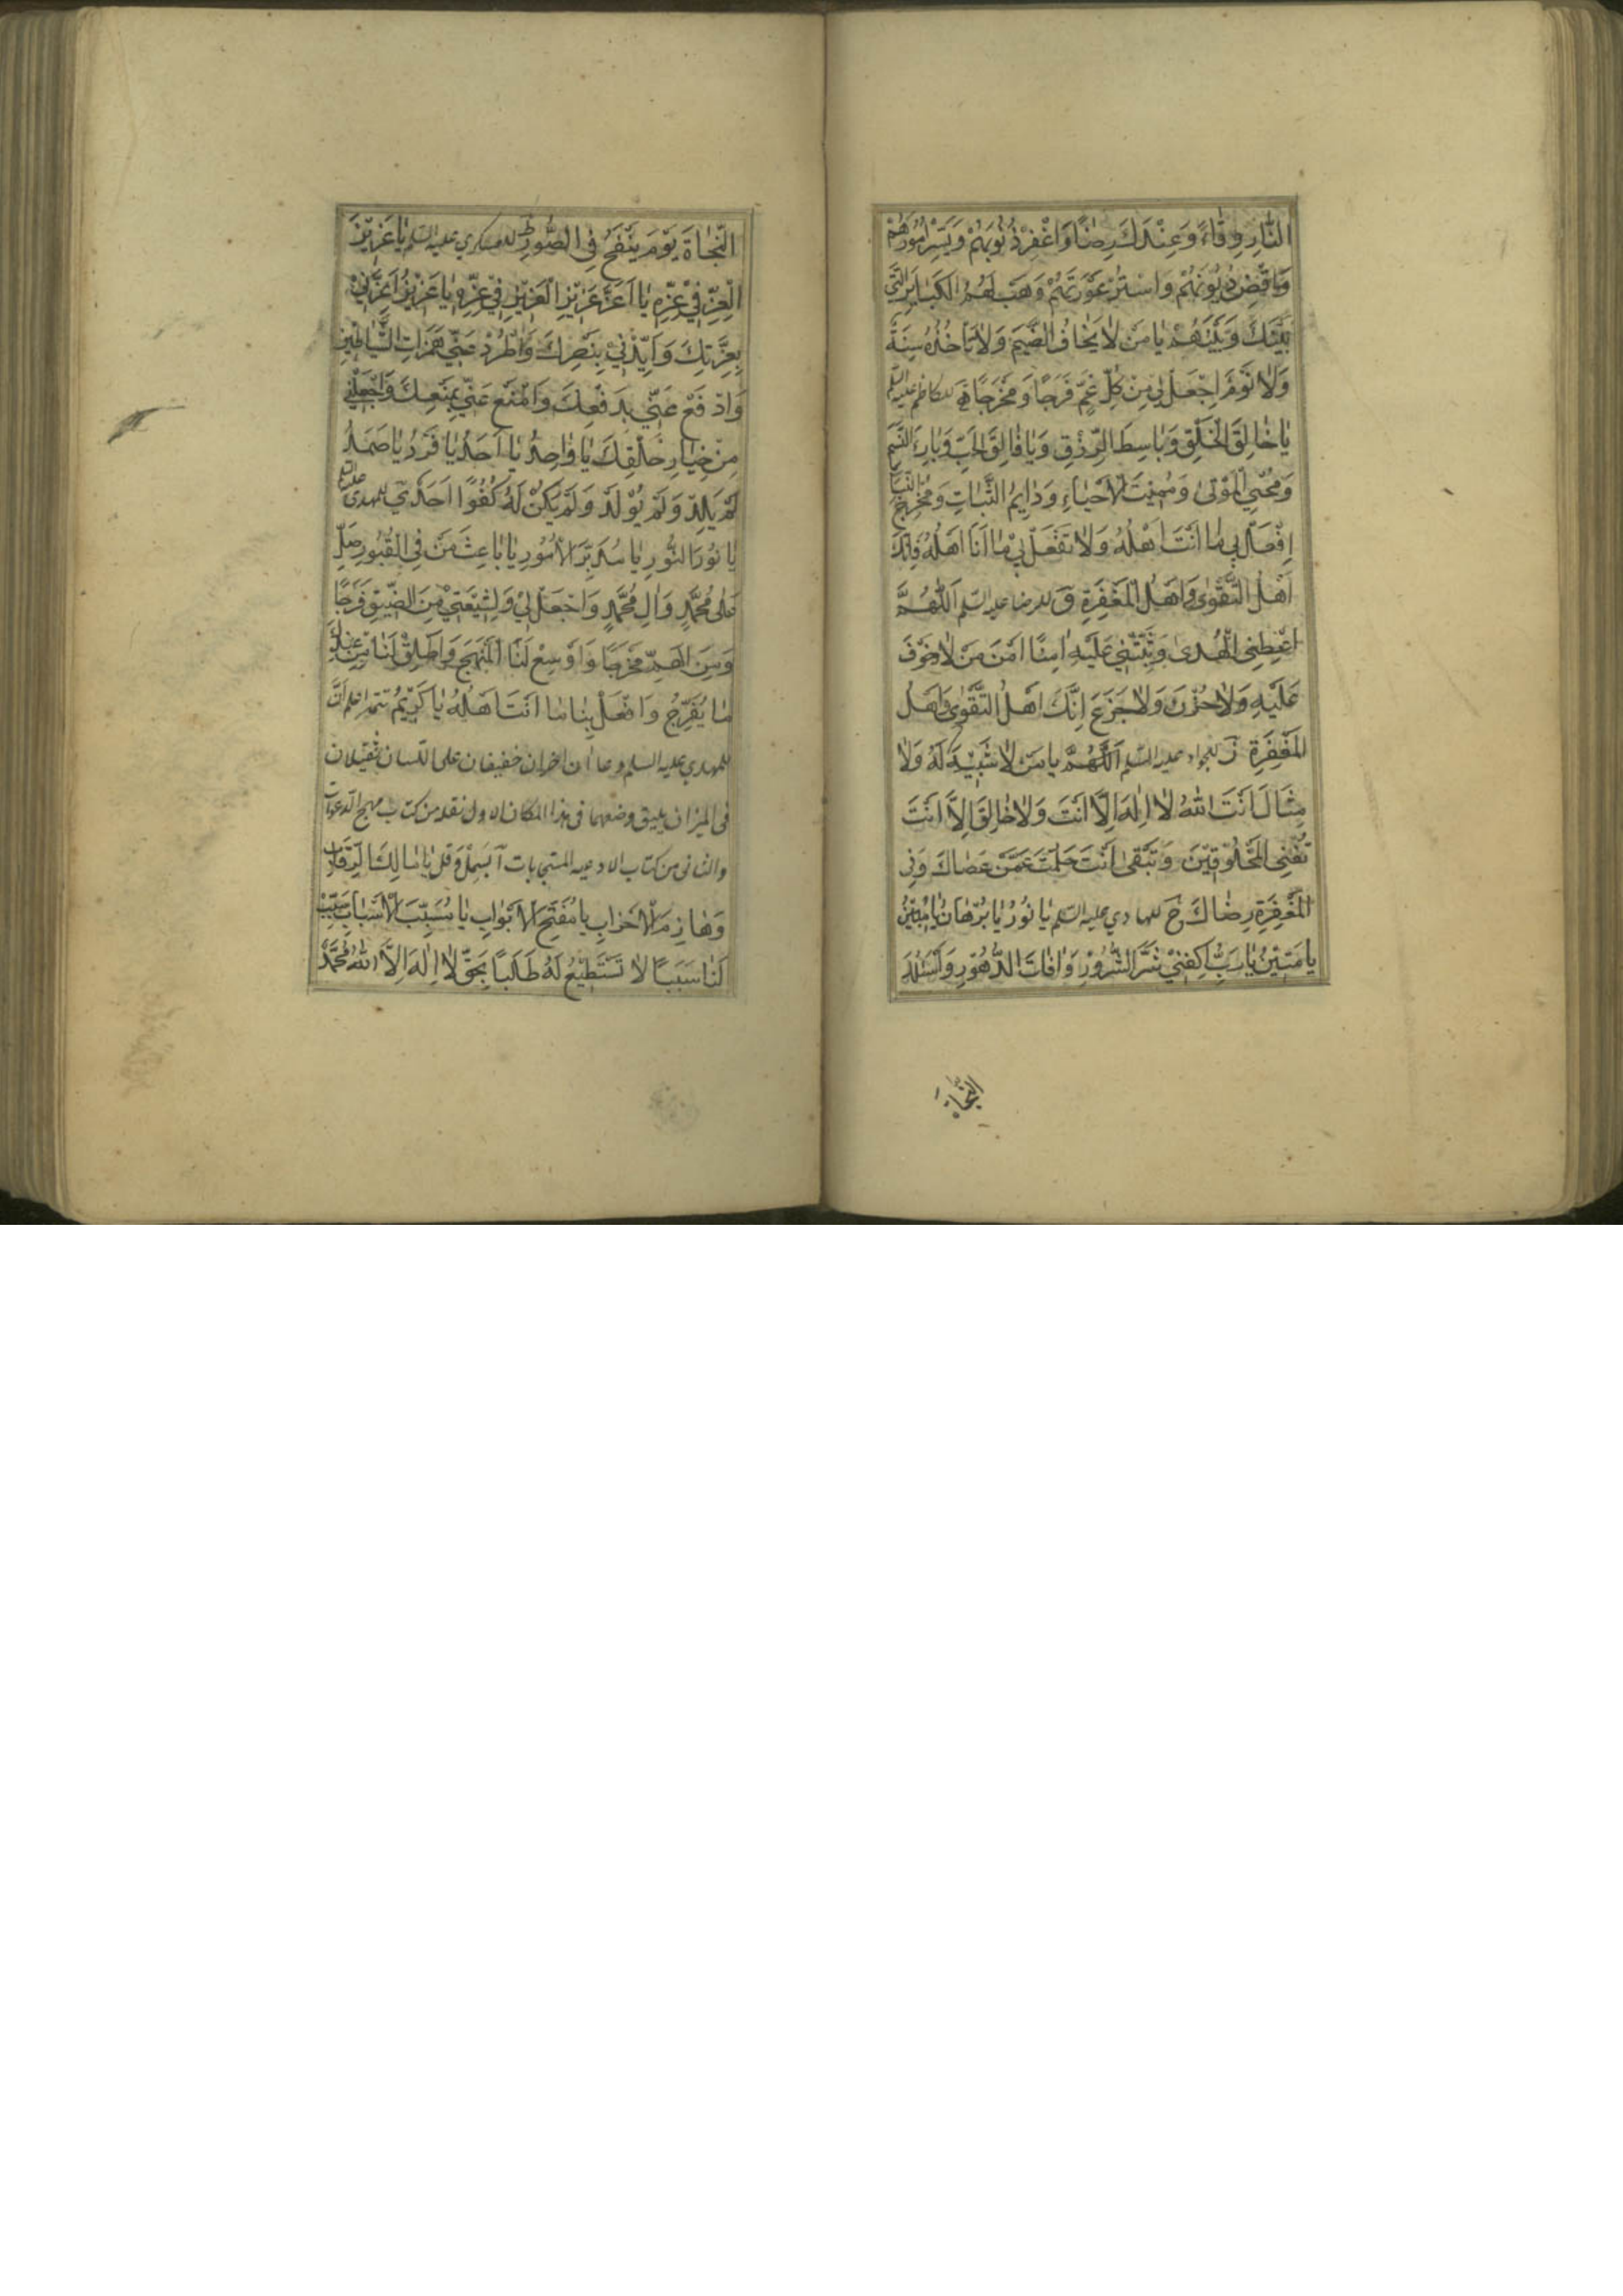 النَّارِ وِقٰاءً وَعِنْدَكَ رِضًا وَاغْفِرْ ذُنُوبَهُمْ وَيَسِّرْ اُمُورَهُمْ
وَاقْضِ دُيُونَهُمْ وَاسْتُرْ عَوْرَتَهُمْ وَهَبْ لَهُمُ الْكَبٰايِرَ الَّتِي
بَيْنَكَ وَبَيْنَهُمْ يٰا مَنْ لٰا يَخٰافُ الضَّيْمَ وَلٰا تَأْخُذُهُ سِنَةٌ
وَلٰا نَوْمٌ اِجْعَلْ لِي مِنْ كُلِّ غَمٍّ فَرَجًا وَمَخْرَجًا للكاظم عليه السلم
يٰا خٰالِقَ الْخَلْقِ وَبٰاسِطَ الرِّزْقِ وَيٰا فٰالِقَ الْحَبِّ وَبٰارِئَ النَّسَمِ
وَمُحْيِيَ الْمَوْتىٰ وَمُمِيتَ الْاَحْيٰاءِ وَدٰايِمَ الثَّبٰاتِ وَمُخْرِجَ النَّبٰاتِ
اِفْعَلْ بِي مٰا اَنْتَ اَهْلُهُ وَلٰا تَفْعَلْ بِي مٰا اَنَا اَهْلُهُ فَاِنَّكَ
اَهْلُ التَّقْوىٰ وَاَهْلُ الْمَغْفِرَةِ وَ للرضا عليه السلم اَللّٰهُمَّ
اَعْطِنِي الْهُدىٰ وَثَبِّتْنِي عَلَيْهِ اٰمِنًا اَمْنَ مَنْ لٰا خَوْفَ
عَلَيْهِ وَلٰا حُزْنَ وَلٰا جَزَعَ اِنَّكَ اَهْلُ التَّقْوىٰ وَاَهْلُ
الْمَغْفِرَةِ زَ للجواد عليه السلم اَللّٰهُمَّ يٰا مَنْ لٰا شَبِيهَ لَهُ وَلٰا
مِثٰالَ اَنْتَ اللّٰهُ لٰا اِلٰهَ اِلّٰا اَنْتَ وَلٰا خٰالِقَ اِلّٰا اَنْتَ
تُفْنِي الْمَخْلُوقِينَ وَتَبْقىٰ اَنْتَ حَلُمْتَ عَمَّنْ عَصٰاكَ وَفِي
الْمَغْفِرَةِ رِضٰاكَ حَ للهادي عليه السلم يٰا نُورُ يٰا بُرْهٰانُ يٰا مُبِينُ
يٰا مَتِينُ يٰا رَبِّ اكْفِنِي شَرَّ الشُّرُورِ وَاٰفٰاتَ الدُّهُورِ وَاَسْئَلُكَ
النَّجٰاةَ
النَّجٰاةَ يَوْمَ يُنْفَخُ فِي الصُّورِ طَ للعسكري عليه السلم يٰا عَزِيزَ
الْعِزِّ فِي عِزِّهِ يٰا اَعَزَّ عَزِيزِ الْعَزِيزِ فِي عِزِّهِ يٰا عَزِيزُ اَعِزَّنِي
بِعِزَّتِكَ وَاَيِّدْنِي بِنَصْرِكَ وَاطْرُدْ عَنِّي هَمَزٰاتِ الشَّيٰاطِينِ
وَادْفَعْ عَنِّي بِدَفْعِكَ وَامْنَعْ عَنِّي بِمَنْعِكَ وَاجْعَلْنِي
مِنْ خِيٰارِ خَلْقِكَ يٰا وٰاحِدُ يٰا اَحَدُ يٰا فَرْدُ يٰا صَمَدُ
لَمْ يَلِدْ وَلَمْ يُولَدْ وَلَمْ يَكُنْ لَهُ كُفُوًا اَحَدٌ يَ للمهدي عليه السلم
يٰا نُورَ النُّورِ يٰا مُدَبِّرَ الْاُمُورِ يٰا بٰاعِثَ مَنْ فِي الْقُبُورِ صَلِّ
عَلىٰ مُحَمَّدٍ وَاٰلِ مُحَمَّدٍ وَاجْعَلْ لِي وَلِشِيعَتِي مِنَ الضِّيقِ فَرَجًا
وَمِنَ الْهَمِّ مَخْرَجًا وَاَوْسِعْ لَنَا الْمَنْهَجَ وَاَطْلِقْ لَنٰا مِنْ عِنْدِكَ
مٰا يُفَرِّجُ وَافْعَلْ بِنٰا مٰا اَنْتَ اَهْلُهُ يٰا كَرِيمُ تتمة اعلم انّ
للمهدي عليه السلم دعاان اخران خفيفان على اللسان ثقيلان
في الميزان يليق وضعهما في هذا المكان الاول نقله من كتاب مهج الدعوات
والثاني من كتاب الادعيه المستجابات آ بَسْمِلْ وَقُلْ يٰا مٰالِكَ الرِّقٰابِ
وَهٰازِمَ الْاَحْزٰابِ يٰا مُفَتِّحَ الْاَبْوٰابِ يٰا مُسَبِّبَ الْاَسْبٰابِ سَبِّبْ
لَنٰا سَبَبًا لٰا نَسْتَطِيعُ لَهُ طَلَبًا بِحَقِّ لٰا اِلٰهَ اِلَّا اللّٰهُ مُحَمَّدٌ